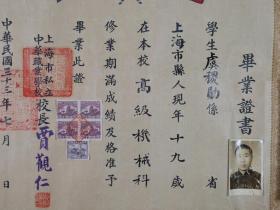 畢業證書
學生虞積勛係 省
上海市縣人現年十九歲
在本校高級機械科
修業期滿成績及格准予
畢業此證
上海市私立
中華職業學校校長賈觀仁
中華民國三十三年七月 日